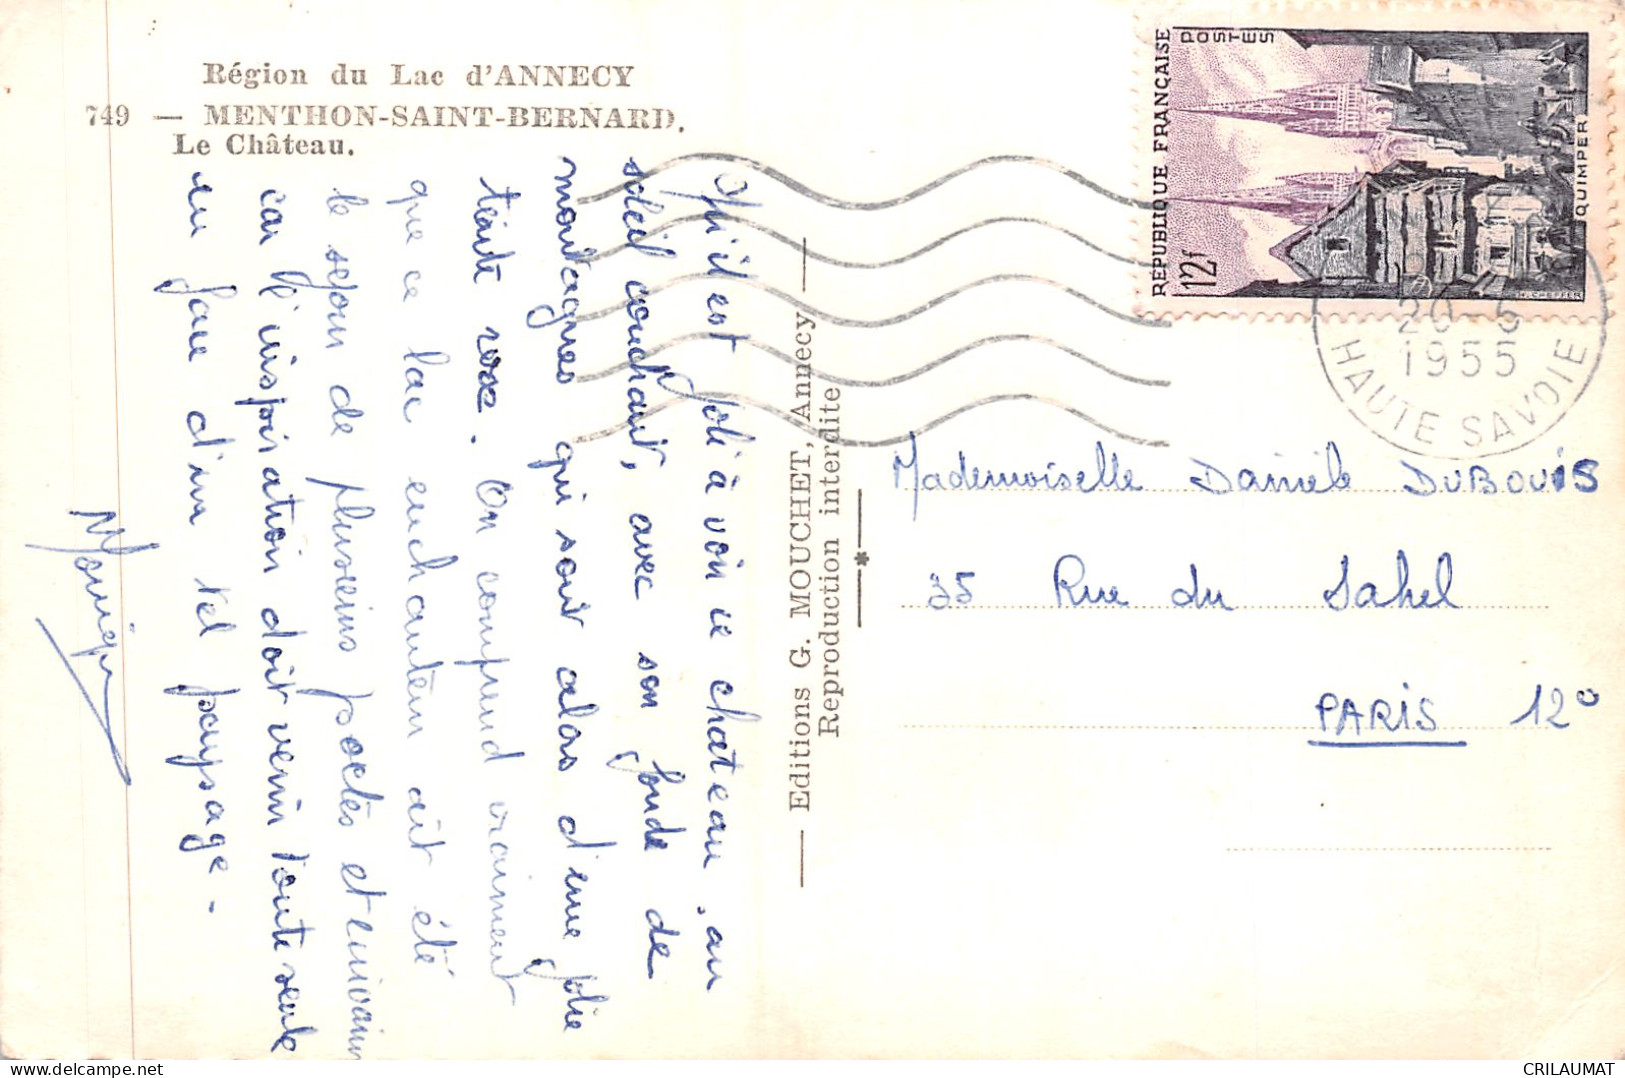 Région du Lac d'ANNECY
749 — MENTHON-SAINT-BERNARD.
Le Château.
Qu'il est joli à voir ce chateau, au
soleil couchant, avec son fonde de
montagnes qui sont alors d'une jolie
teinte rose. On comprend vraiment
que ce lac enchanteur ait été
le sejour de plusieurs poetes et ecrivains
car l'inspiration doit venir toute seule
en face d'un tel paysage -
Monique
— Editions G. MOUCHET, Annecy —
Reproduction interdite
*
REPUBLIQUE FRANÇAISE
POSTES
12f
QUIMPER
CHEFFER
20-5
1955
HAUTE SAVOIE
Mademoiselle Danièle DUBOUIS
35 Rue du Sahel
PARIS 12e
CRILAUMAT